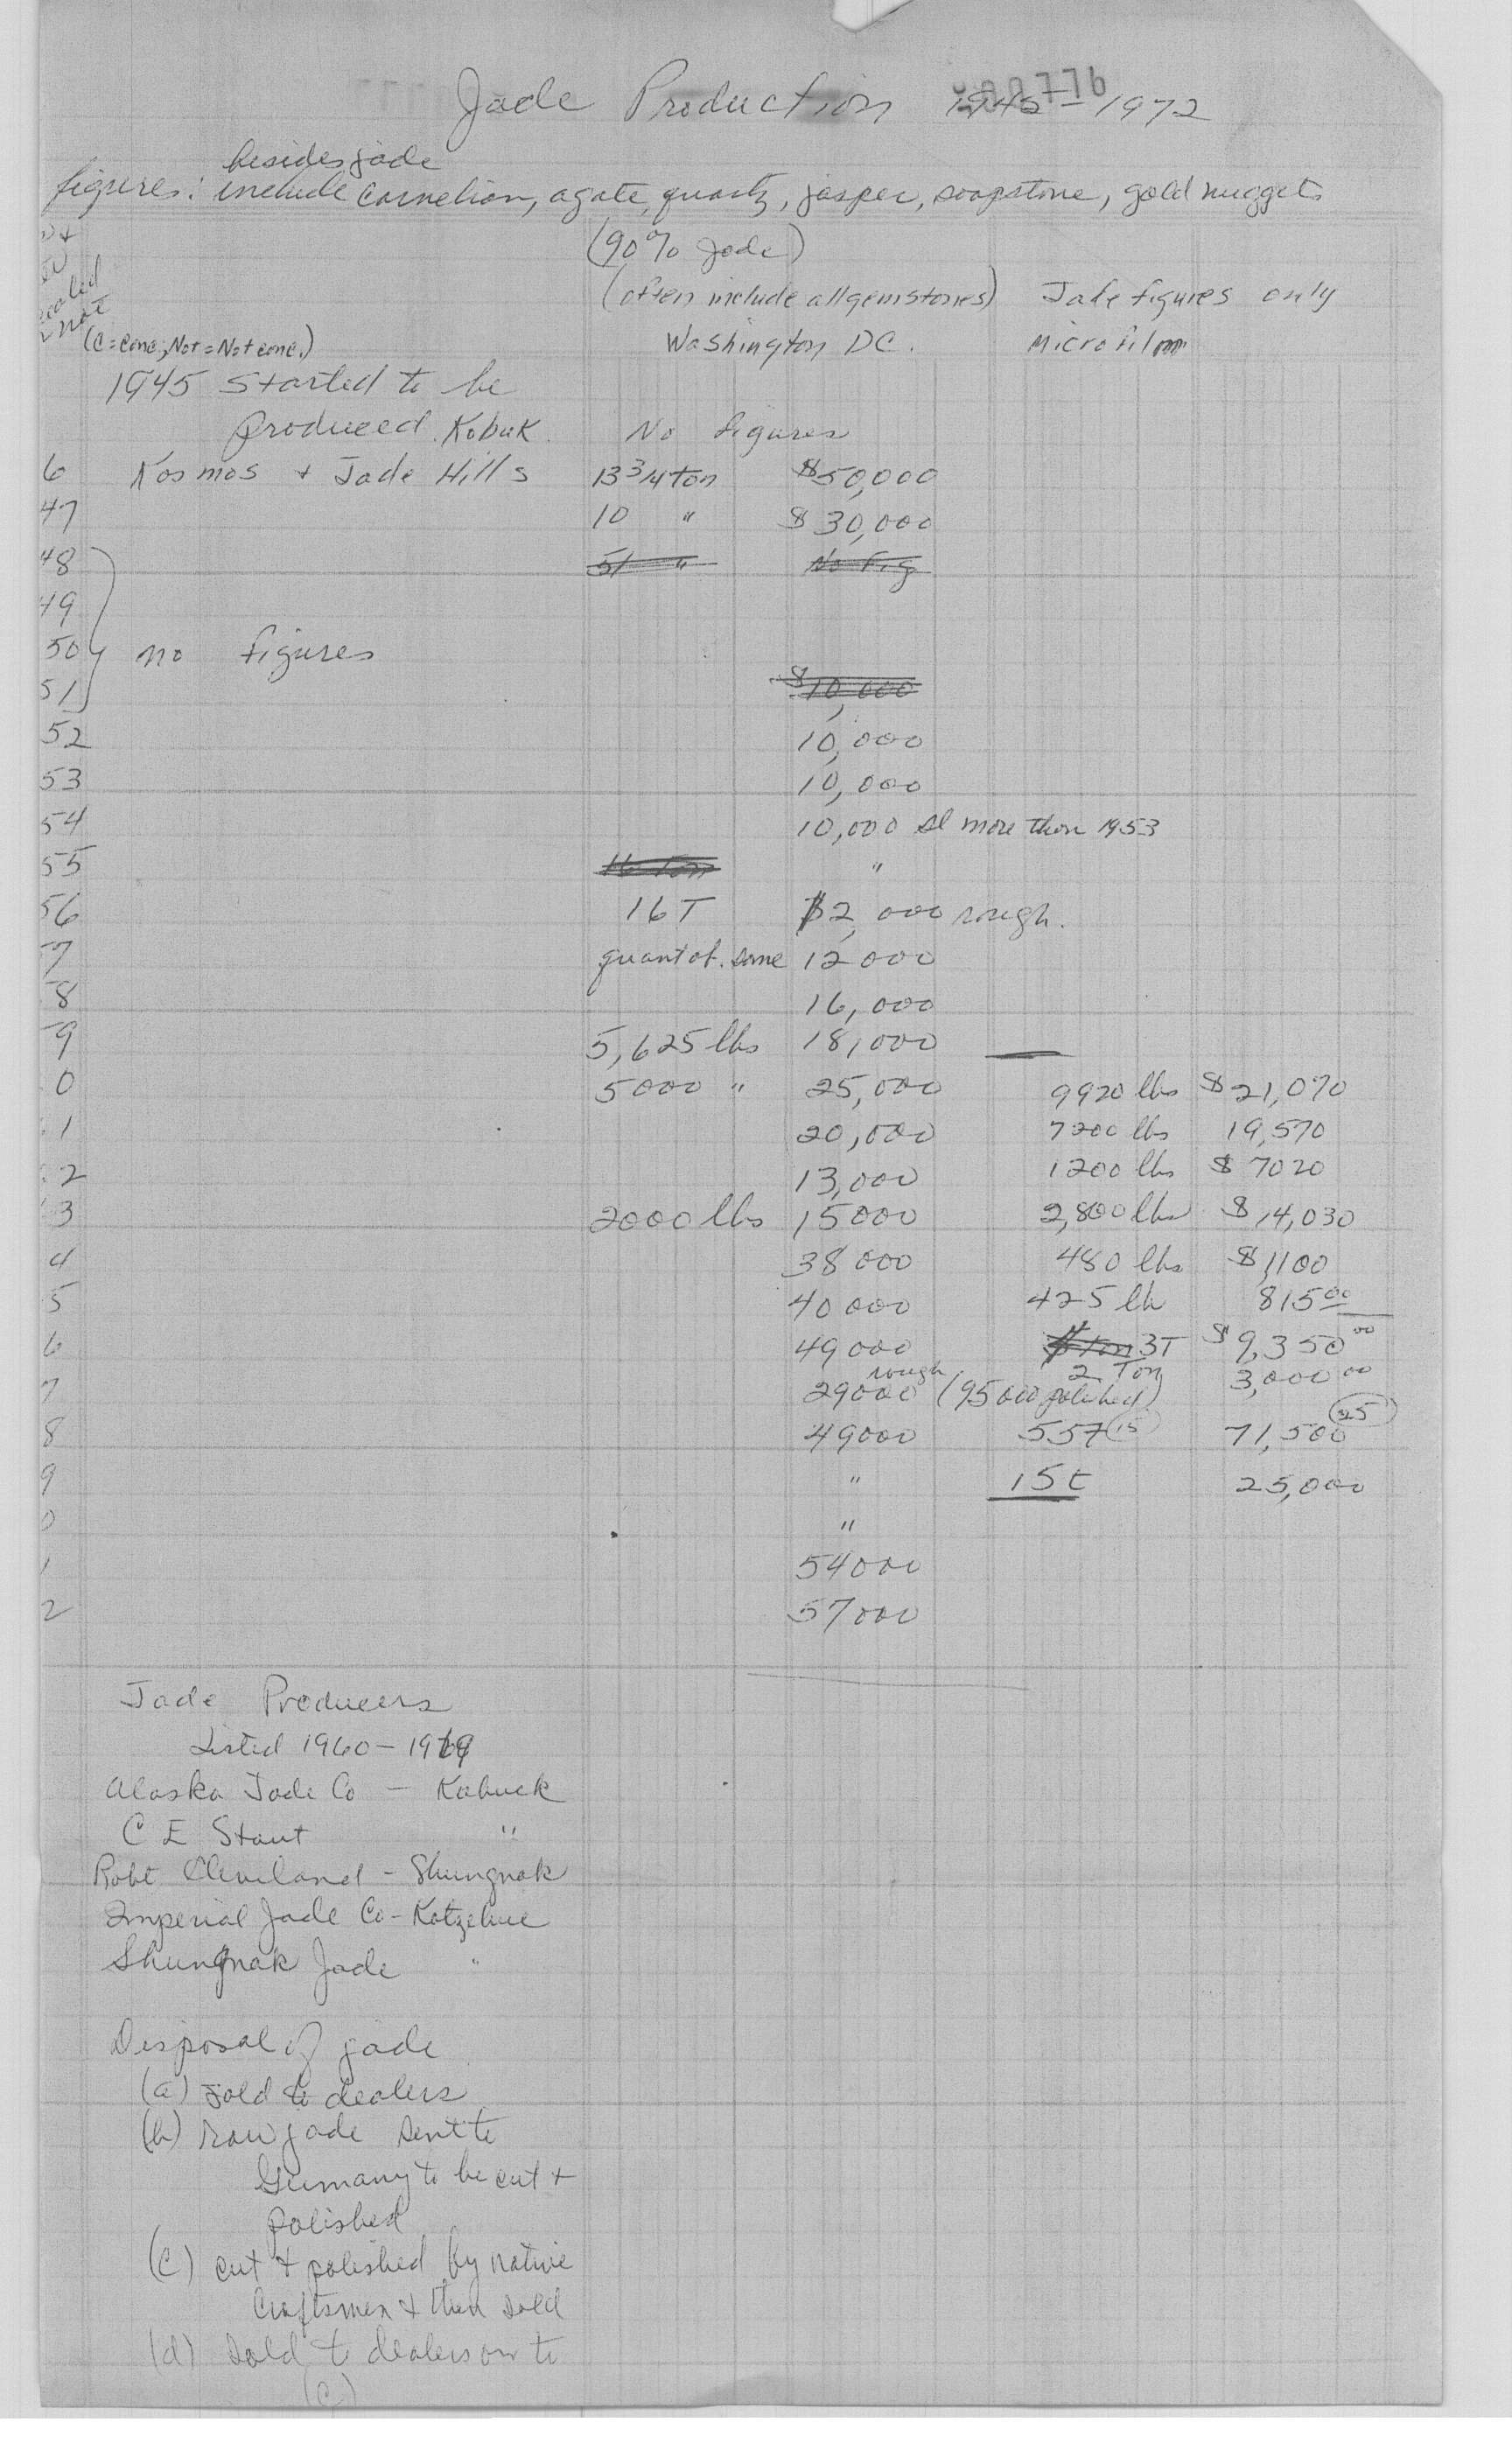 Jade Production 1945-1972
besides jade
figures: include carnelian, agate, quartz, jasper, soapstone, gold nuggets
(90% Jade)
(often include all gemstones) Jade figures only
not
(C=conc; Not=Not conc.) Washington DC. Microfilm
1945 started to be
produced. Kobuk. No figures
6 Kosmos + Jade Hills 13 3/4 ton $50,000
47 10 " $30,000
48 51 " No Fig
49
50 no figures
51 $10,000
52 10,000
53 10,000
54 10,000 sl more than 1953
55 16 Ton "
56 16 T 2,000 rough.
7 quant of. same 12000
8 16,000
9 5,625 lbs 18,000 —
0 5000 " 25,000 9920 lbs $21,070
1 20,000 7200 lbs 19,570
2 13,000 1200 lbs $7020
3 2000 lbs 15000 2,800 lbs $14,030
4 38000 480 lbs $1,100
5 40000 425 lb 815 00
6 49000 3T $9,350 00
7 29000 rough (95000 polished) 2 Ton 3,000 00
8 49000 557 (15) 71,500 (25)
9 " 15t 25,000
0 "
1 54000
2 57000
Jade Producers
Listed 1960-1969
Alaska Jade Co - Kobuck
C E Stout "
Robt Cleveland - Shungnak
Imperial Jade Co - Kotzebue
Shungnak Jade "
Disposal of jade
(a) sold to dealers
(b) raw jade sent to
Germany to be cut +
polished
(c) cut + polished by native
craftsmen + then sold
(d) sold to dealers or to
(c)